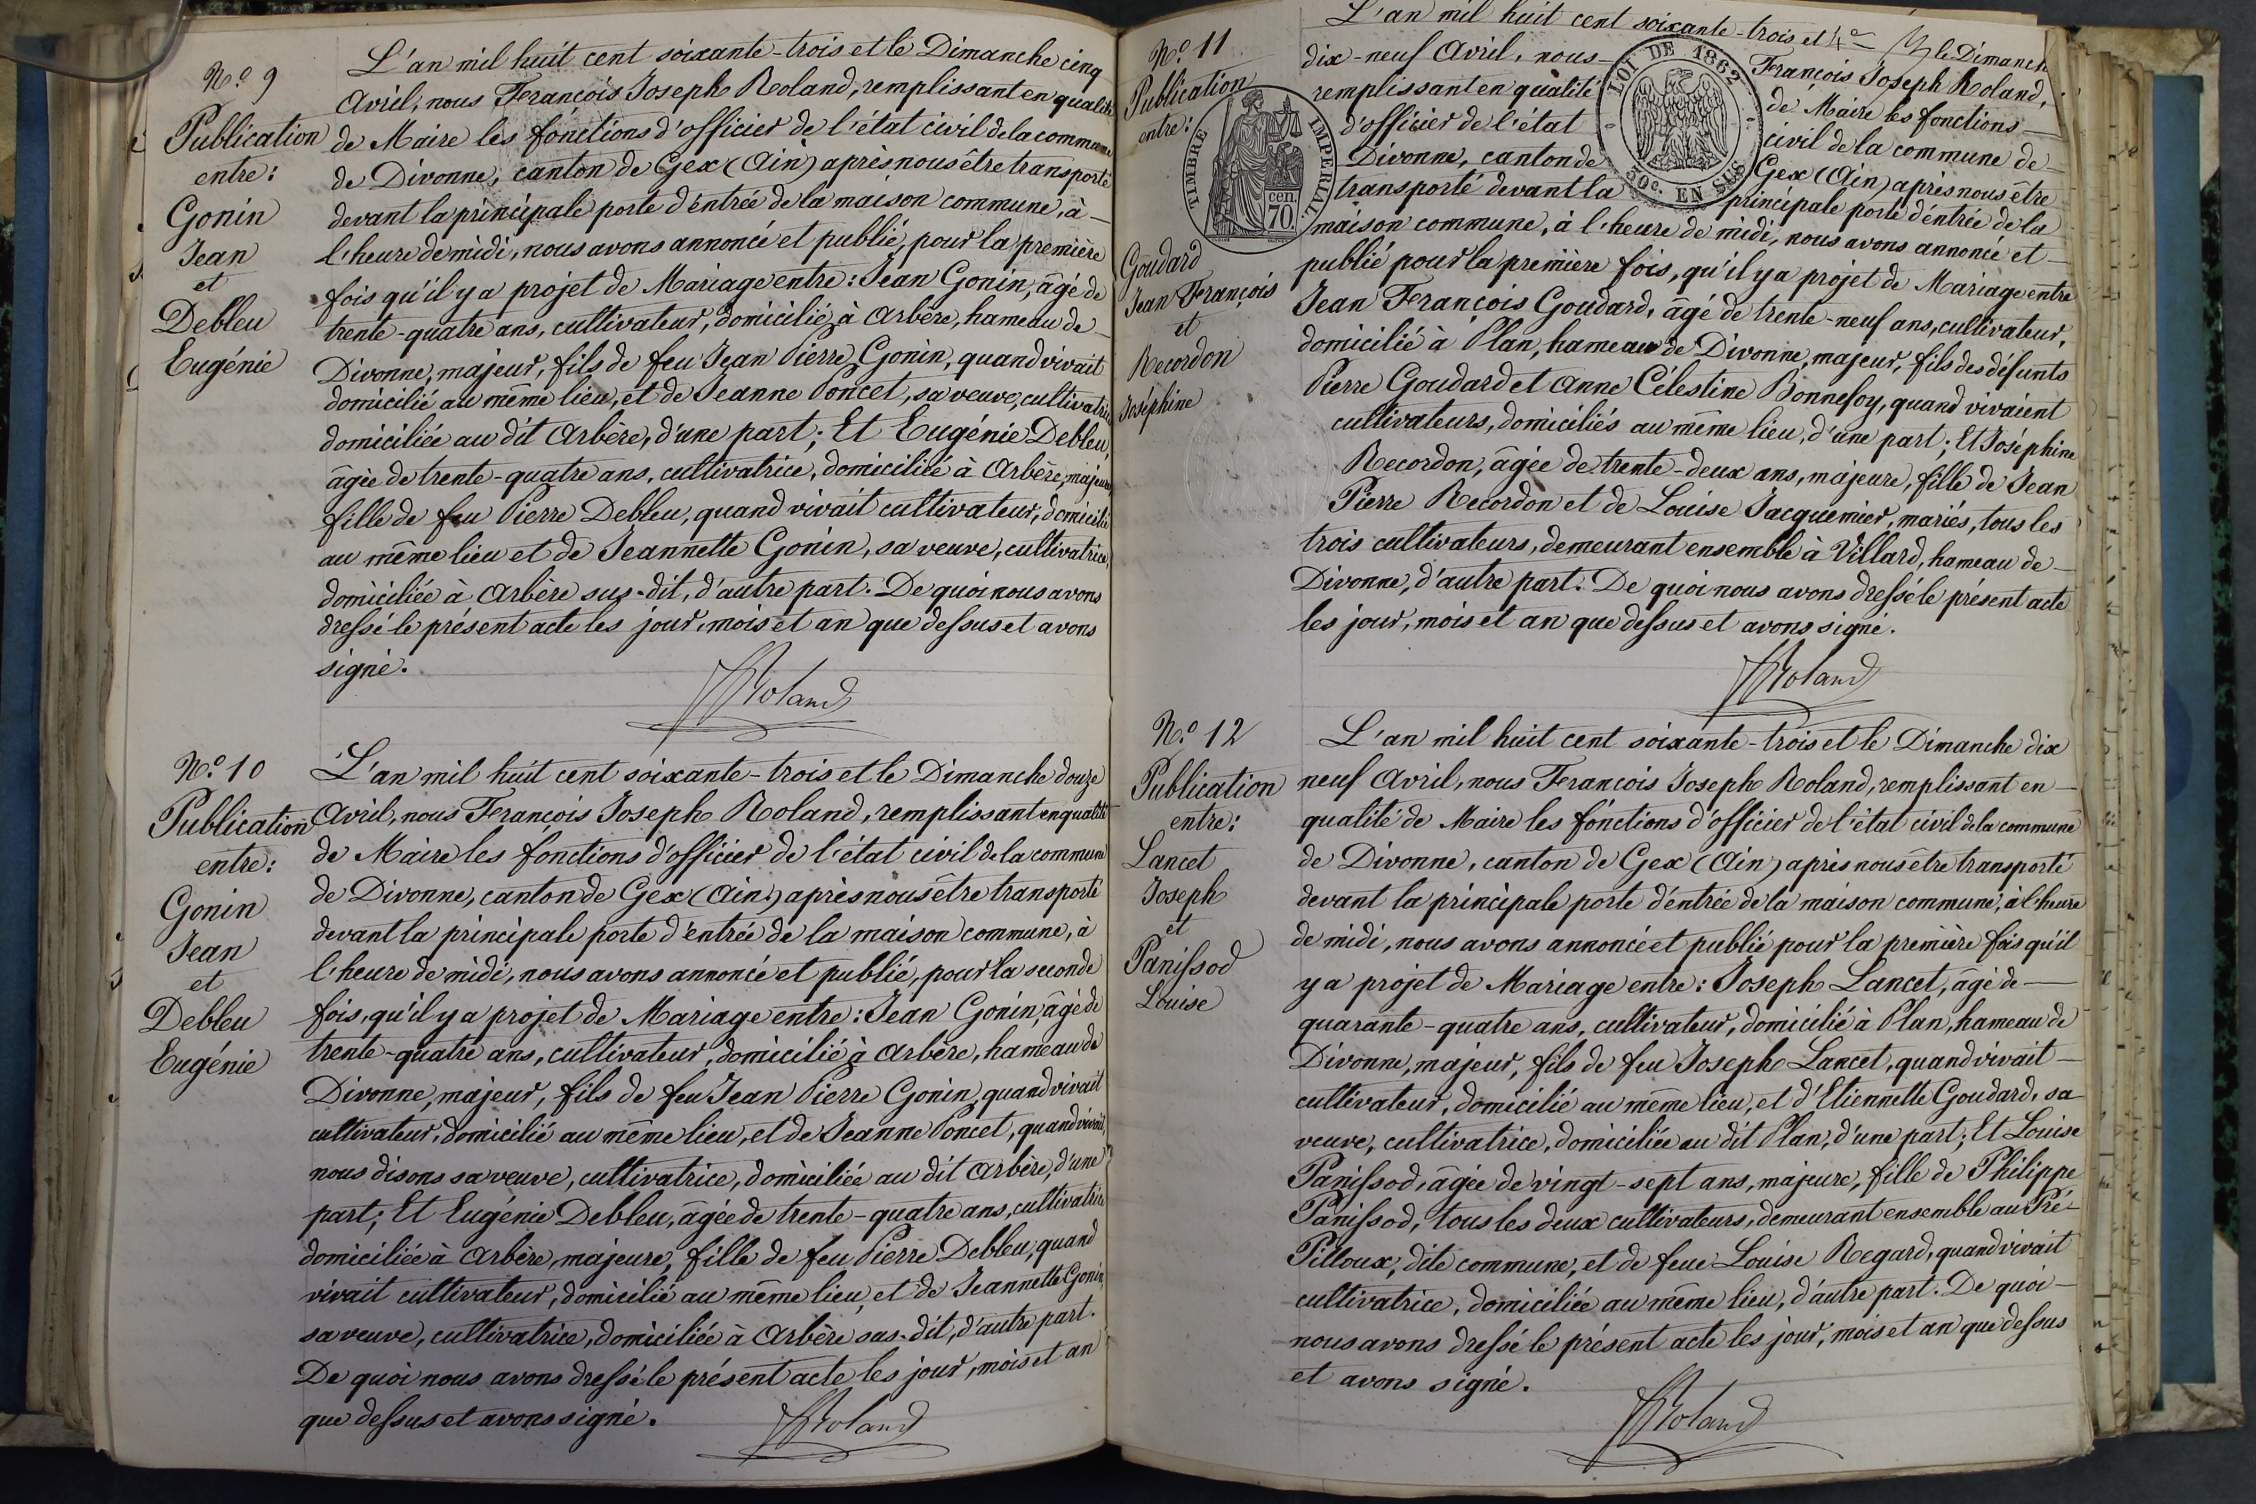 N.o 9
Publication
entre:
Gonin
Jean
et
Debleu
Eugénie
L'an mil huit cent soixante-trois et le Dimanche cinq
Avril, nous François Joseph Roland, remplissant en qualité
de Maire les fonctions d'officier de l'état civil de la commune
de Divonne, canton de Gex (Ain) après nous être transporté
devant la principale porte d'entrée de la maison commune, à
l'heure de midi, nous avons annoncé et publié, pour la première
fois qu'il y a projet de Mariage entre: Jean Gonin, âgé de
trente-quatre ans, cultivateur, domicilié à Arbère, hameau de
Divonne, majeur, fils de feu Jean Pierre Gonin, quand vivait
domicilié au même lieu, et de Jeanne Poncet, sa veuve, cultivatrice
domiciliée au dit Arbère, d'une part; Et Eugénie Debleu,
âgée de trente-quatre ans, cultivatrice, domiciliée à Arbère, majeure,
fille de feu Pierre Debleu, quand vivait cultivateur, domicilié
au même lieu et de Jeannette Gonin, sa veuve, cultivatrice,
domiciliée à Arbère sus-dit, d'autre part. De quoi nous avons
dressé le présent acte les jour, mois et an que dessus et avons
signé.
Roland
N.o 10
Publication
entre:
Gonin
Jean
et
Debleu
Eugénie
L'an mil huit cent soixante-trois et le Dimanche douze
Avril, nous François Joseph Roland, remplissant en qualité
de Maire les fonctions d'officier de l'état civil de la commune
de Divonne, canton de Gex (Ain) après nous être transporté
devant la principale porte d'entrée de la maison commune, à
l'heure de midi, nous avons annoncé et publié, pour la seconde
fois, qu'il y a projet de Mariage entre: Jean Gonin, âgé de
trente-quatre ans, cultivateur, domicilié à Arbère, hameau de
Divonne, majeur, fils de feu Jean Pierre Gonin, quand vivait
cultivateur, domicilié au même lieu, et de Jeanne Poncet, quand vivait,
nous disons sa veuve, cultivatrice, domiciliée au dit Arbère, d'une
part; Et Eugénie Debleu, âgée de trente-quatre ans, cultivatrice
domiciliée à Arbère, majeure, fille de feu Pierre Debleu, quand
vivait cultivateur, domicilié au même lieu, et de Jeannette Gonin,
sa veuve, cultivatrice, domiciliée à Arbère sus-dit, d'autre part.
De quoi nous avons dressé le présent acte les jour, mois et an
que dessus et avons signé.
Roland
N.o 11
Publication
entre:
Goudard
Jean François
et
Recordon
Joséphine
TIMBRE IMPERIAL
cen. 70.
LOI DE 1862
50c. EN SUS
L'an mil huit cent soixante-trois et le Dimanche
dix-neuf Avril, nous François Joseph Roland,
remplissant en qualité de Maire les fonctions
d'officier de l'état civil de la commune de
Divonne, canton de Gex (Ain) après nous être
transporté devant la principale porte d'entrée de la
maison commune, à l'heure de midi, nous avons annoncé et
publié pour la première fois, qu'il y a projet de Mariage entre
Jean François Goudard, âgé de trente-neuf ans, cultivateur,
domicilié à Plan, hameau de Divonne, majeur, fils des défunts
Pierre Goudard et Anne Célestine Bonnefoy, quand vivaient
cultivateurs, domiciliés au même lieu, d'une part; Et Joséphine
Recordon, âgée de trente-deux ans, majeure, fille de Jean
Pierre Recordon et de Louise Jacquemier, mariés, tous les
trois cultivateurs, demeurant ensemble à Villard, hameau de
Divonne, d'autre part. De quoi nous avons dressé le présent acte
les jour, mois et an que dessus et avons signé.
Roland
N.o 12
Publication
entre:
Lancet
Joseph
et
Panissod
Louise
L'an mil huit cent soixante-trois et le Dimanche dix
neuf Avril, nous François Joseph Roland, remplissant en
qualité de Maire les fonctions d'officier de l'état civil de la commune
de Divonne, canton de Gex (Ain) après nous être transporté
devant la principale porte d'entrée de la maison commune, à l'heure
de midi, nous avons annoncé et publié pour la première fois qu'il
y a projet de Mariage entre: Joseph Lancet, âgé de
quarante-quatre ans, cultivateur, domicilié à Plan, hameau de
Divonne, majeur, fils de feu Joseph Lancet, quand vivait
cultivateur, domicilié au même lieu, et d'Etiennette Goudard, sa
veuve, cultivatrice, domiciliée au dit Plan, d'une part; Et Louise
Panissod, âgée de vingt-sept ans, majeure, fille de Philippe
Panissod, tous les deux cultivateurs, demeurant ensemble au Pré-
Pilloux, dite commune, et de feue Louise Regard, quand vivait
cultivatrice, domiciliée au même lieu, d'autre part. De quoi
nous avons dressé le présent acte les jour, mois et an que dessus
et avons signé.
Roland